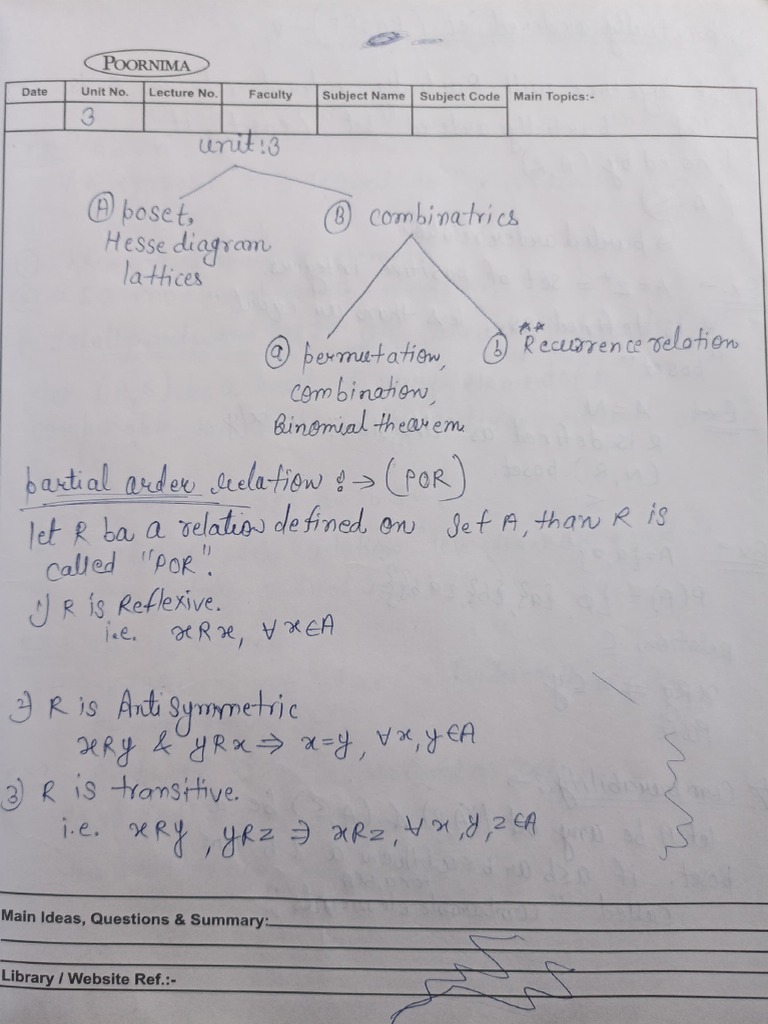 POORNIMA
Date Unit No. Lecture No. Faculty Subject Name Subject Code Main Topics:-
3
unit:3
Ⓐ poset, Ⓑ combinatrics
Hesse diagram
lattices
ⓐ permutation, ⓑ Recurrence relation
combination,
Binomial thearem
partial arder relation :→ (POR)
let R ba a relation defined on Set A, than R is
called "POR".
1) R is Reflexive.
i.e. xRx, ∀ x∈A
2) R is Anti Symmetric
xRy & yRx ⇒ x=y, ∀x, y∈A
3) R is transitive.
i.e. xRy, yRz ⇒ xRz, ∀ x, y, z∈A
Main Ideas, Questions & Summary:
Library / Website Ref.:-